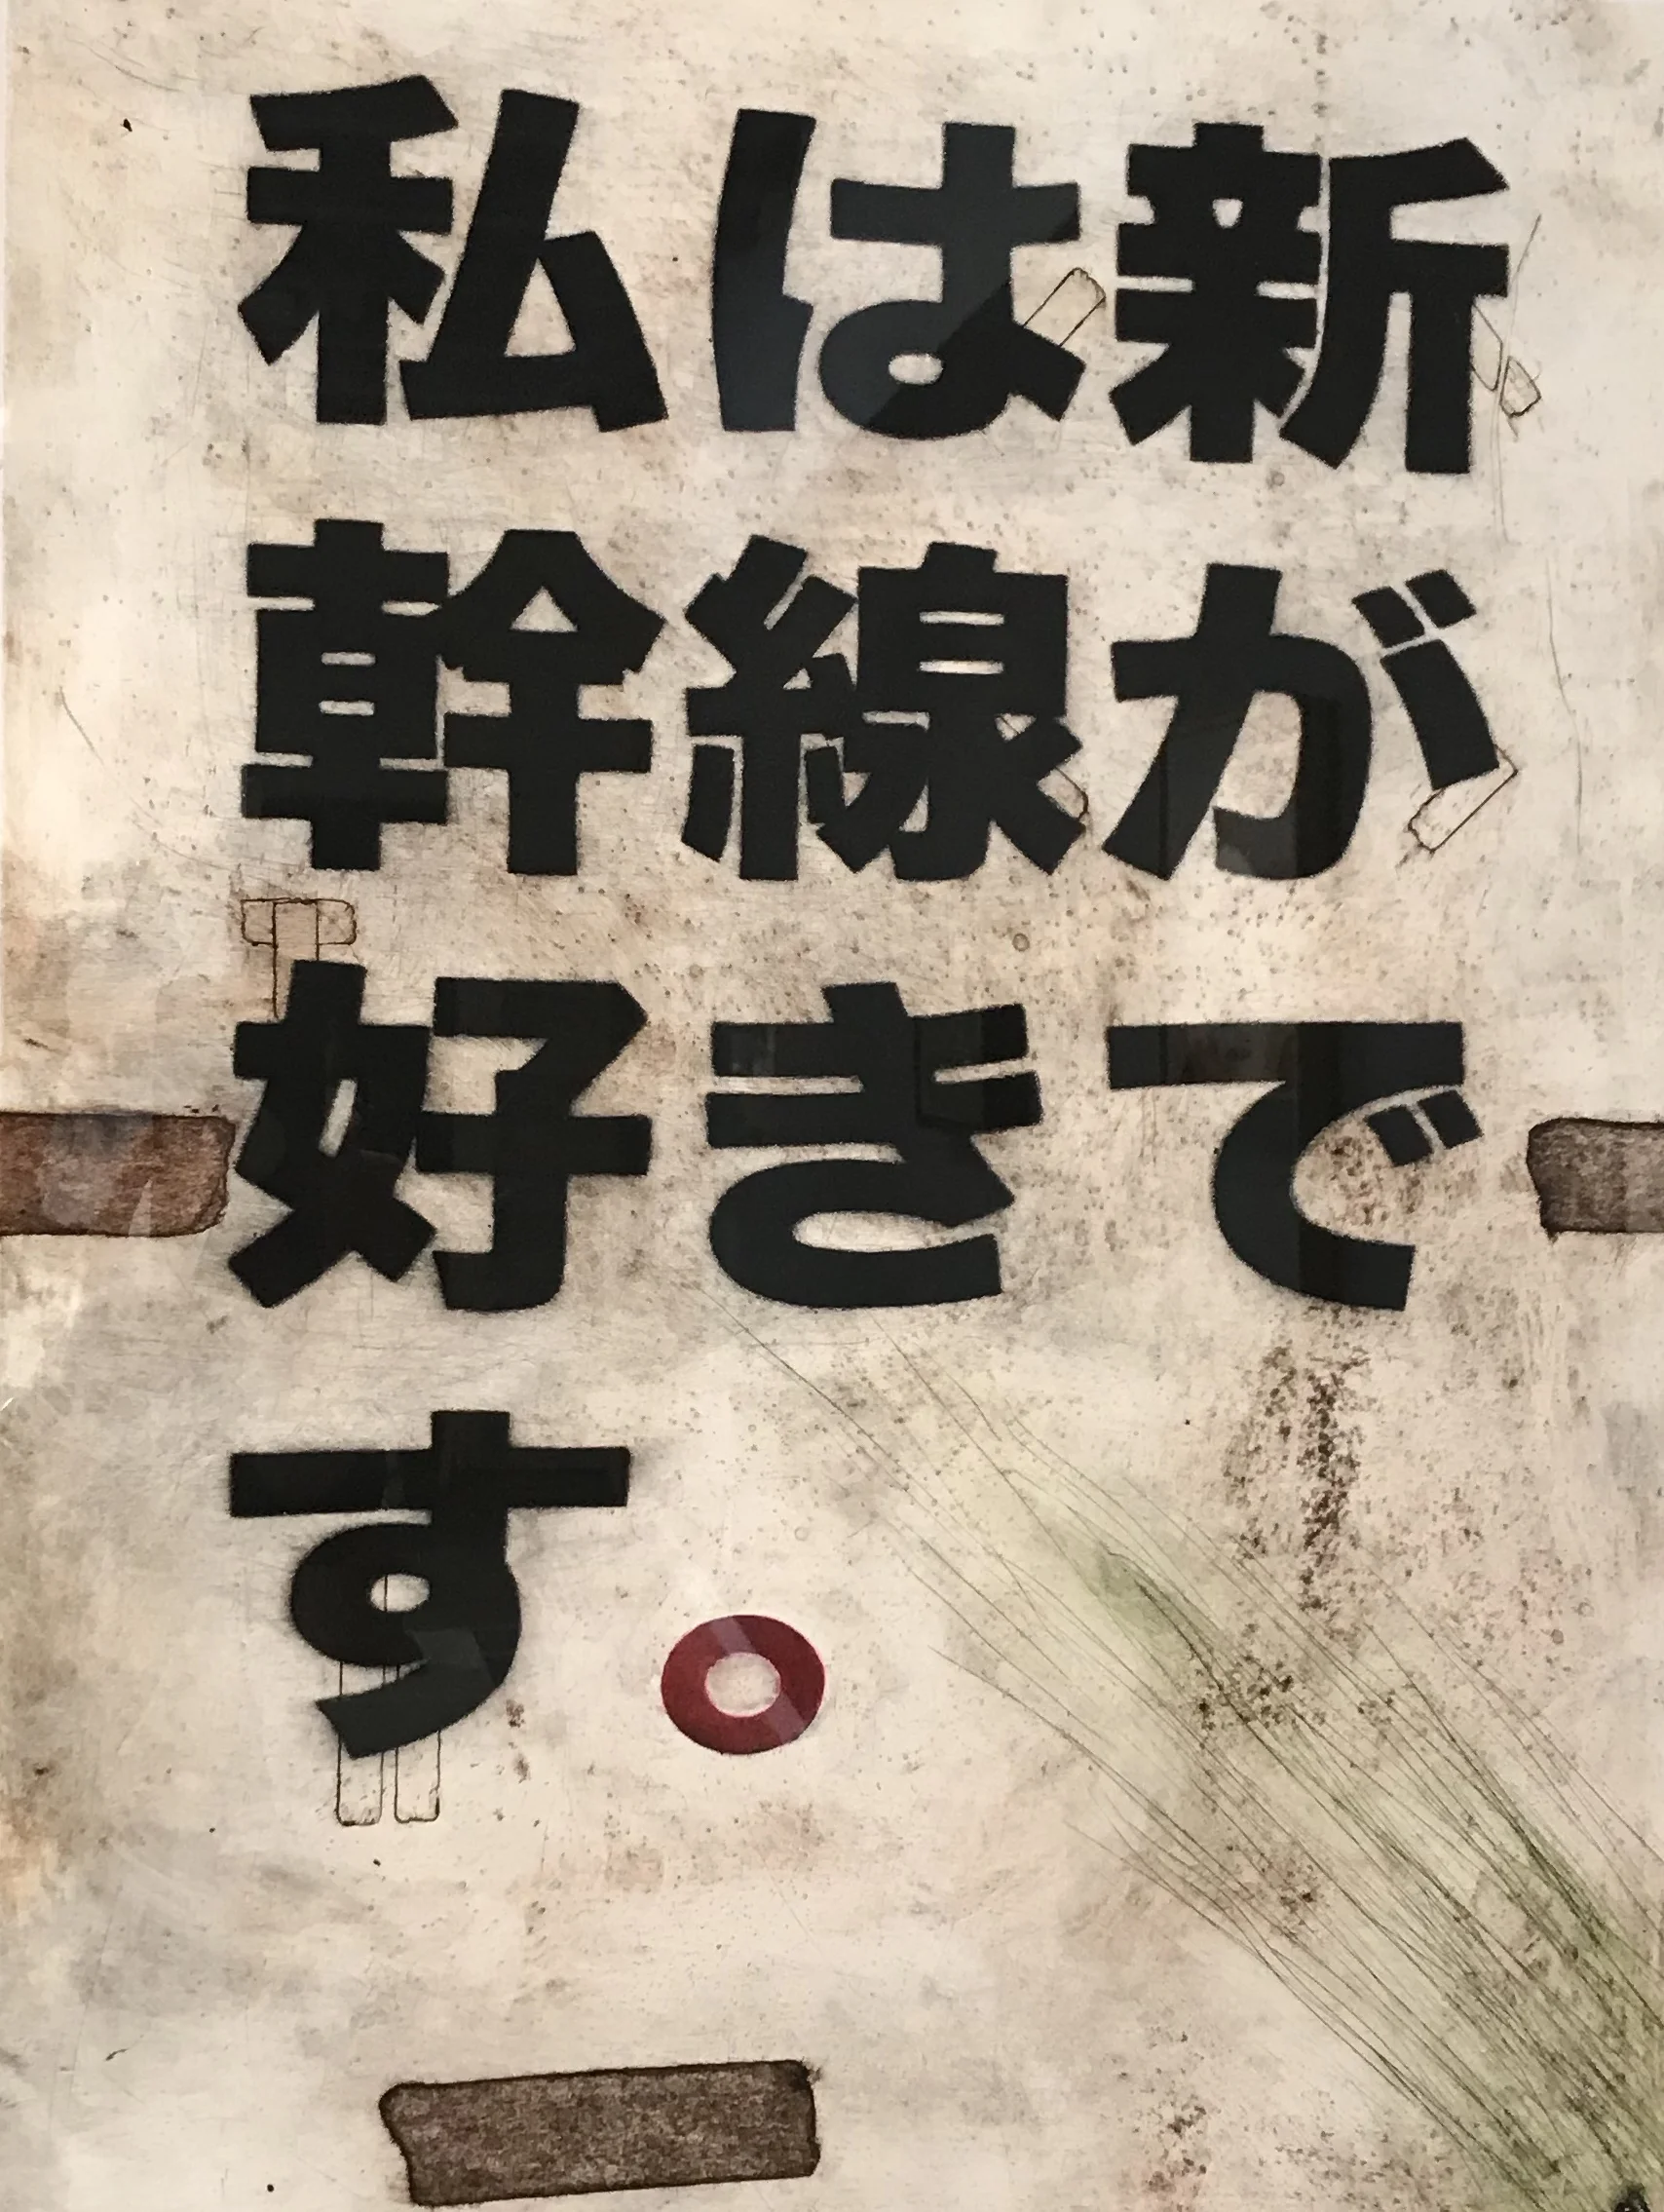 私は新
幹線が
好きで
す。